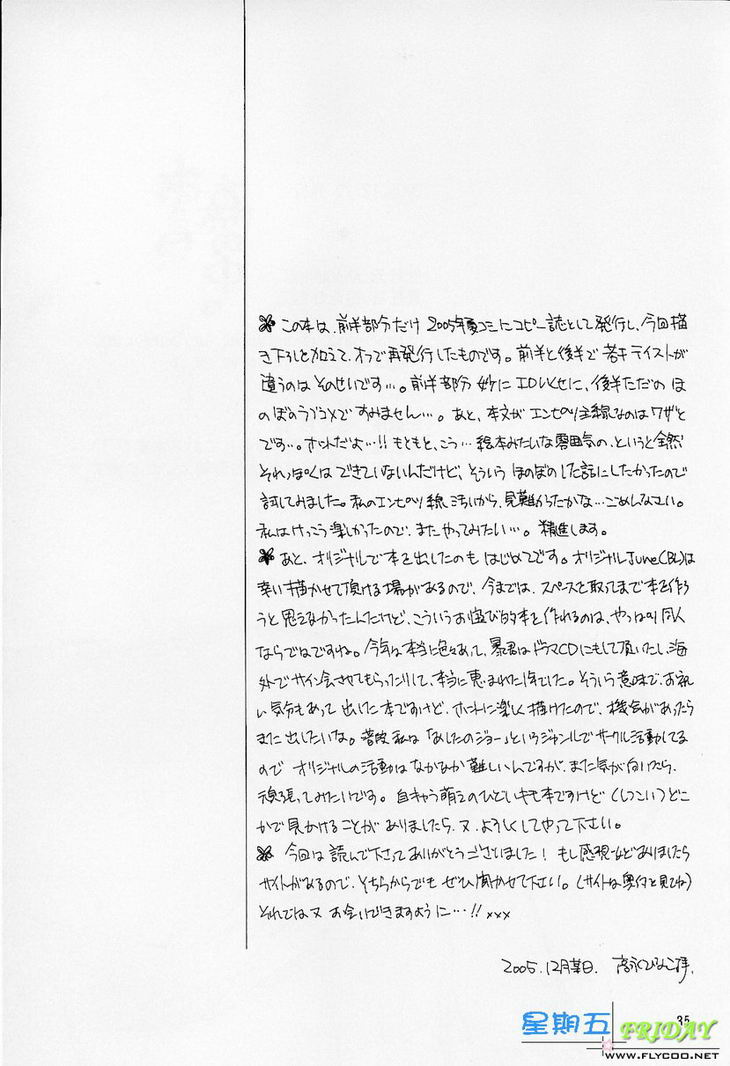 この本は、前半部分だけ2005年夏コミにコピー誌として発行し、今回描
き下ろしを加えて、オフで再発行したものです。前半と後半で若干テイストが
違うのはそのせいです…。前半部分 妙にエロいくせに、後半ただの ほ
のぼのラブコメですみません…。あと、本文がエンピツ主線なのはワザと
です…。ホントだよ…!! もともと、こう…絵本みたいな雰囲気の、というと全然
それっぽくはできていないんだけど、そういう ほのぼのした話にしたかったので
試してみました。私のエンピツ線 汚いから、見難かったかな…ごめんなさい。
私はけっこう楽しかったので、またやってみたい…。精進します。
あと、オリジナルで本を出したのも はじめてです。オリジナルJune(BL)は
幸い描かせて頂ける場があるので、今までは、スペースを取ってまで本を作ろ
うと思えなかったんだけど、こういうお遊び的本を作れるのは、やっぱり同人
ならではですね。今年は本当に色々あって、暴君はドラマCDにもして頂いたし、海
外でサイン会させてもらったりして、本当に恵まれた1年でした。そういう意味で、お祝
い気分もあって出した本ですけど、ホントに楽しく描けたので、機会があったら
また出したいな。普段 私は「あしたのジョー」というジャンルでサークル活動してる
ので オリジナルの活動はなかなか難しいんですが、また気が向いたら、
頑張ってみたいです。自キャラ萌えのひどい キモ本ですけど(しつこい)どこ
かで見かけることがありましたら、又、よろしくしてやって下さい。
今回は読んで下さってありがとうございました! もし感想などありましたら
サイトがあるので、そちらからでも ぜひ聞かせて下さい。(サイトは奥付を見てね)
それでは又 お会いできますように…!! xxx
2005.12月某日. 高永ひなこ拝.
35
星期五 FRIDAY
WWW.FLYCOO.NET